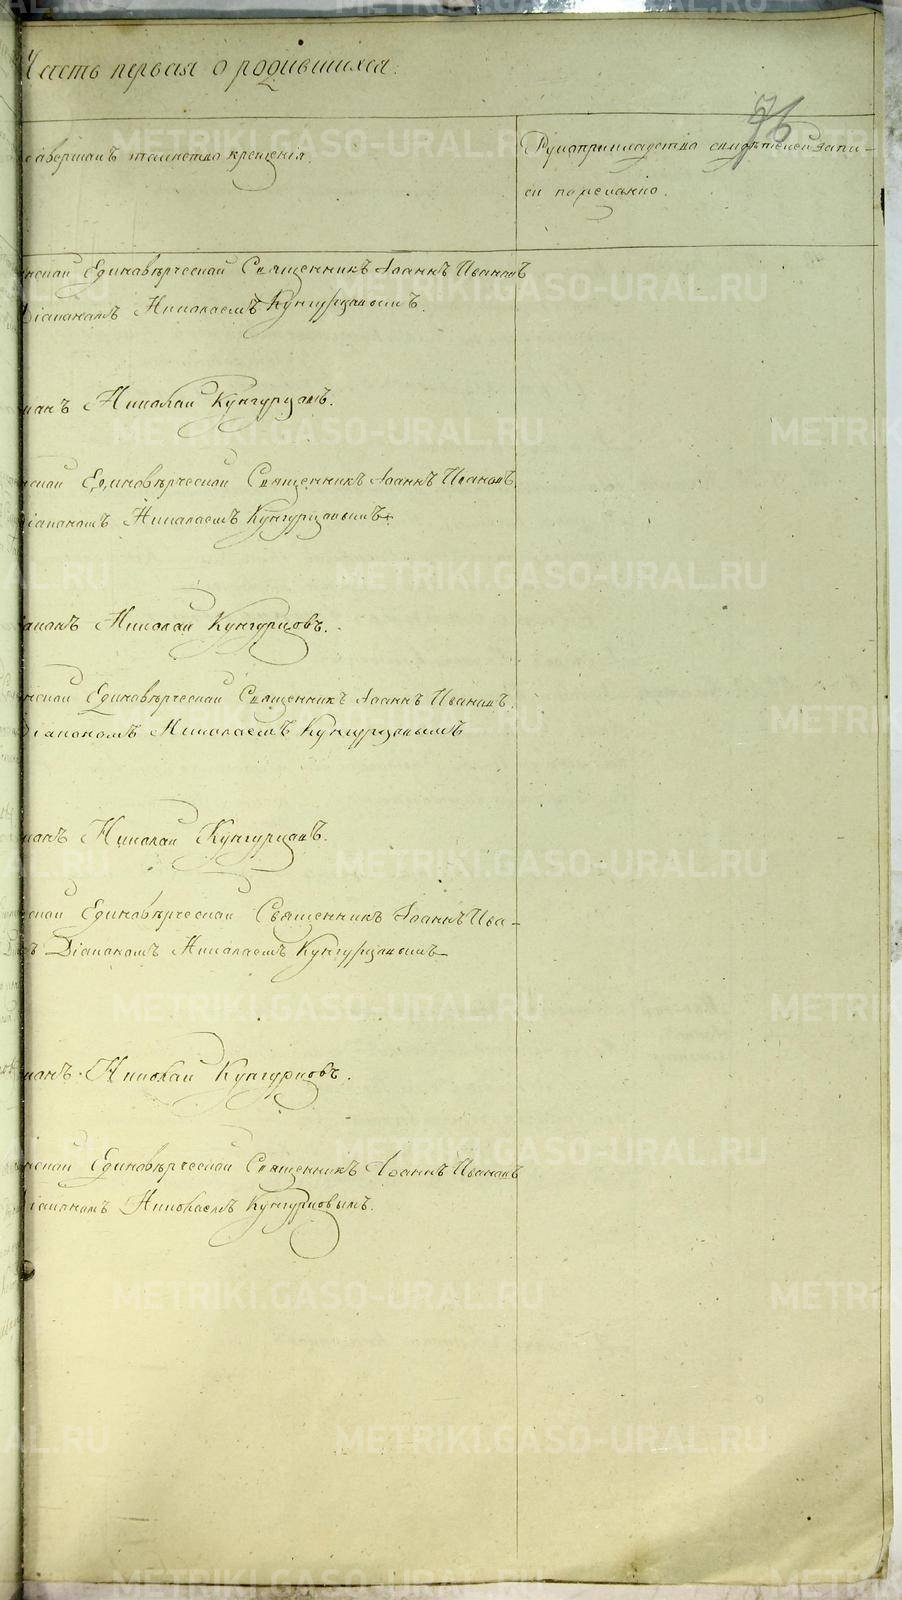 Часть первая о родившихся.
76
совершалъ таинство крещенія.
Рукоприкладство свидѣтелей запи-
си по желанію.
нской Единовѣрческой Священникъ Іоаннъ Ивановъ
Діакономъ Николаемъ Кунгурцовымъ.
Николай Кунгурцовъ.
нской Единовѣрческой Священникъ Іоаннъ Ивановъ
Діакономъ Николаемъ Кунгурцовымъ
Николай Кунгурцовъ.
нской Единовѣрческой Священникъ Іоаннъ Ивановъ.
Діакономъ Николаемъ Кунгурцовымъ
Николай Кунгурцовъ.
ской Единовѣрческой Священникъ Іоаннъ Ива-
Діакономъ Николаемъ Кунгурцовымъ
Николай Кунгурцовъ.
нской Единовѣрческой Священникъ Іоаннъ Ивановъ
Діакономъ Николаемъ Кунгурцовымъ.
METRIKI.GASO-URAL.RU